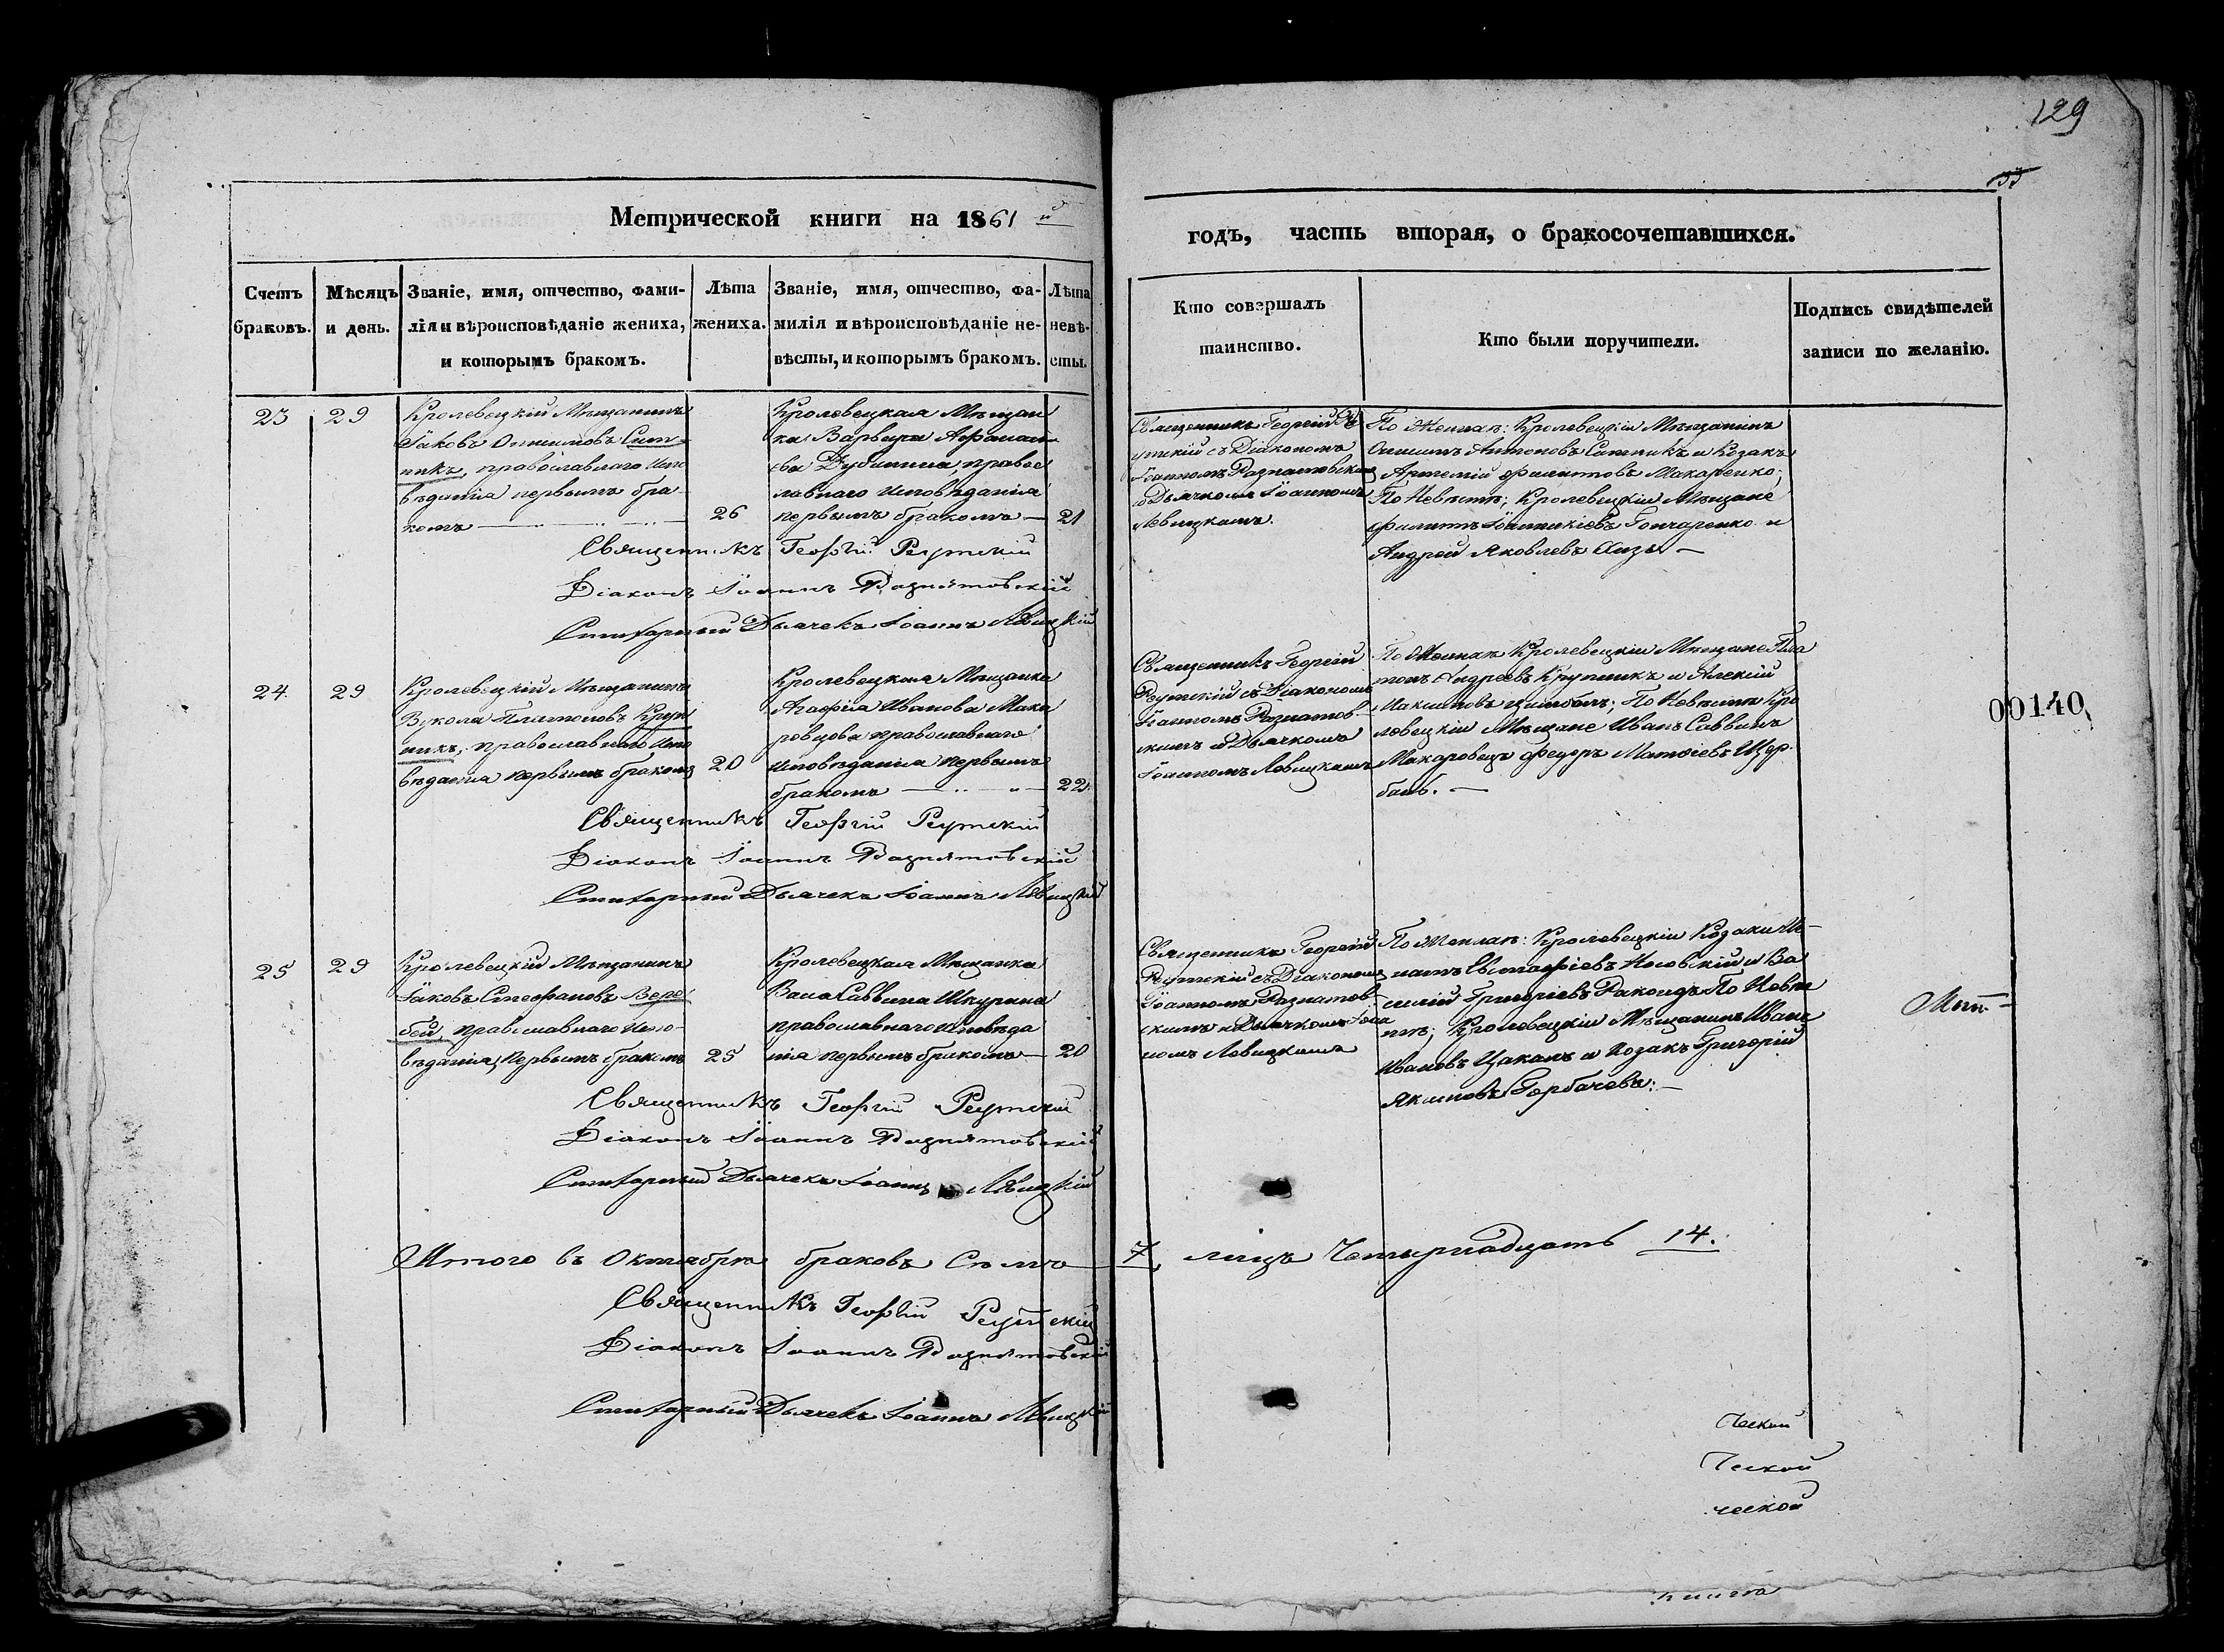 129
Метрической книги на 1861 й
годъ, часть вторая, о бракосочетавшихся.
Счетъ браковъ.
Мѣсяцъ и день.
Званіе, имя, отчество, фами-
лія и вѣроисповѣданіе жениха,
и которымъ бракомъ.
Лѣта
жениха.
Званіе, имя, отчество, фа-
милія и вѣроисповѣданіе не-
вѣсты, и которымъ бракомъ.
Лѣта
невѣ-
сты.
Кто совершалъ
таинство.
Кто были поручители.
Подпись свидѣтелей
записи по желанію.
23
29
Кролевецкій Мѣщанинъ
Іаковъ Онисимовъ Сит-
никъ, православнаго испо
вѣданія первымъ бра-
комъ
26
Кролевецкая Мѣщан
ка Варвара Афанась
ева Дубинина, правос
лавнаго исповѣданія
первымъ бракомъ
21
Священникъ Георгій Ре
утскій съ Діакономъ
Іоанномъ
и Дьячкомъ Іоанномъ
Левицкимъ.
По Женихѣ: Кролевецкіи Мѣщанинъ
Онисимъ Антоновъ Ситникъ и Козакъ
Артемій Филиповъ Макаренко;
По Невѣстѣ; Кролевецкіи Мѣщане
Филипъ Іоанникіевъ Гончаренко и
Андрей Яковлевъ
Священникъ Георгій Реутскій
Діаконъ Іоаннъ
Стихарный Дьячекъ Іоаннъ Левицкій
24
29
Кролевецкій Мѣщанинъ
Вукола Платоновъ Круп
никъ, православнаго испо
вѣданія первымъ бракомъ
20
Кролевецкая Мѣщанка
Агафія Иванова Мака
ровцова православнаго
исповѣданія первымъ
бракомъ
22
Священникъ Георгій
Реутскій съ Діакономъ
Іоанномъ
скимъ и Дьячкомъ
Іоанномъ Левицкимъ
По Женихѣ Кролевецкіи Мѣщане Пла
тонъ Андреевъ Крупникъ и Алексій
По Невѣстѣ Кро
левецкіи Мѣщане Иванъ Саввинъ
Макаровецъ Федоръ Матвіевъ Щер
бань.
Священникъ Георгій Реутскій
Діаконъ Іоаннъ
Стихарный Дьячекъ Іоаннъ Левицкій
00140
25
29
Кролевецкій Мѣщанинъ
Іаковъ Стефановъ Вере
бей, православнаго испо-
вѣданія, первымъ бракомъ
25
Кролевецкая Мѣщанка
Васса Саввина Шкурина
православнаго исповѣда
нія первымъ бракомъ
20
Священникъ Георгій
Реутскій съ Діакономъ
Іоанномъ
скимъ и Дьячкомъ Іоан
номъ Левицкимъ
По Женихѣ: Кролевецкіи Козаки Иг-
натъ Евстафіевъ Носовскій и Ва
силій Григоріевъ Ракоидъ По Невѣс
тѣ; Кролевецкіи Мѣщанинъ Иванъ
Ивановъ Цаканъ и Козакъ Григорій
Якимовъ Горбачевъ.
Священникъ Георгій Реутскій
Діаконъ Іоаннъ
Стихарный Дьячекъ Іоаннъ Левицкій
Итого въ Октябрѣ браковъ Семь 7, лицъ Четырнадцать 14.
Священникъ Георгій Реутскій
Діаконъ Іоаннъ
Стихарный Дьячекъ Іоаннъ Левицкій
ческой
ческой
ческой
книга